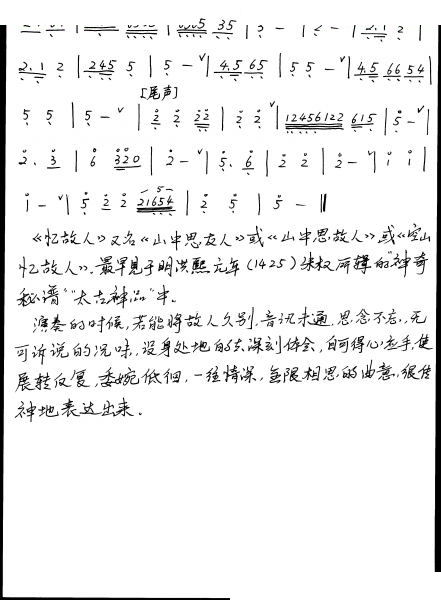 2.1 2 | 245 5 | 5 - ∨ | 4.5 65 | 5 5 - ∨ | 4.5 66 54 |
[尾声]
5 5 | 5 - ∨ | 2 2 22 | 2 2 ∨ | 12456122 615 | 5 - ∨ |
2. 3 | 6 320 | 2 - ∨ | 5. 6 | 2 2 | 2 - ∨ | i i |
i - ∨ | 5 2 2 21654 | 2 5 | 5 - ‖
《忆故人》又名《山中思友人》或《山中思故人》或《空山
忆故人》。最早见于明洪熙元年(1425)朱权所辑的“神奇
秘谱”“太古神品”中。
演奏的时候,若能将故人久别,音讯未通,思念不忘,无
可诉说的况味,设身处地的去深刻体会,自可得心应手,使
展转反复,委婉低徊,一往情深,无限相思的曲意,很传
神地表达出来。